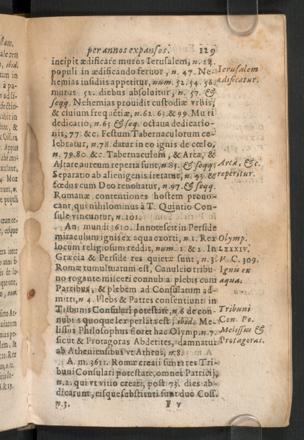 per annos expansos. 129
incipit ædificare muros Ierusalem, n. 28.
populi in ædificando fervor, n. 47. Ne-
hemias insidiis appetitur, num. 52. 54. 56.
murus 52. diebus absolvitur, n. 57. &
seqq. Nehemias providit custodiæ vrbis,
& civium frequẽtiæ, n. 62. 63. & 69. Muri
dedicatio, n. 61. & seq. octava dedicatio-
nis, 77. & c. Festum Tabernaculorum ce-
lebratur, n. 78. datur in eo ignis de cœlo,
n. 79. 80. &c. Tabernaculum, & Arca, &
Altare autem reperta sunt, n. 81. & seqq.
Separatio ab alienigenis iteratur, n. 95. &
fœdus cum Deo renovatur, n. 97. & seqq.
Romanæ contentiones hostem provo-
cant, qui nihilominus à T. Quinctio Con-
sule vincuntur, n. 101.
An. mundi 3610. Innotescit in Perside
miraculum ignis ex aqua exorti, n. 1. Rex
locum religiosum reddit, num. 1. & 2. In
Græcia & Perside res quietæ sunt, n. 3.
Romæ tumultuatum est, Canuleio tribu-
no rogante misceri connubia plebis cum
Patribus, & plebem ad Consulatum ad-
mitti, n. 4. Plebs & Patres consentiunt in
Tribunis Consulari potestate, n. 6 de con-
nubiis quoque lex perlata est, ibid. Me-
lissus Philosophus floret hac Olymp. n. 7.
sicut & Protagoras Abderites, damnatur
ab Atheniensibus vt Atheus, n. 8.
A. m. 3611. Romæ creati sunt tres Tri-
buni Consulari potestate, omnes Patricij,
n. 2. qui vt vitio creati, post 73. dies ab-
dicarunt, eisque substituti sunt duo Coss.
n. 3. F v
Ierusalem
ædificatur.
Arca, &c.
reperitur.
Olymp.
LXXXIV.
V. C. 309.
Ignis ex
aqua.
Tribuni
Con. Po.
Melissus &
Protagoras.